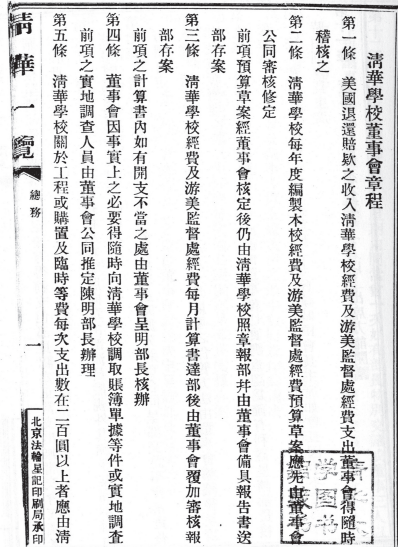 清華學校董事會章程
第一條　美國退還賠欵之收入清華學校經費及游美監督處經費支出董事會得隨時
稽核之
第二條　清華學校每年度編製本校經費及游美監督處經費預算草案應先由董事會
公同審核修定
前項預算草案經董事會核定後仍由清華學校照章報部幷由董事會備具報告書送
部存案
第三條　清華學校經費及游美監督處經費每月計算書達部後由董事會覆加審核報
部存案
前項之計算書內如有開支不當之處由董事會呈明部長核辦
第四條　董事會因事實上之必要得隨時向清華學校調取賬簿單據等件或實地調查
前項之實地調查人員由董事會公同推定陳明部長辦理
第五條　清華學校關於工程或購置及臨時等費每次支出數在二百圓以上者應由清
清華一覽
總務
一
北京法輪星記印刷局承印